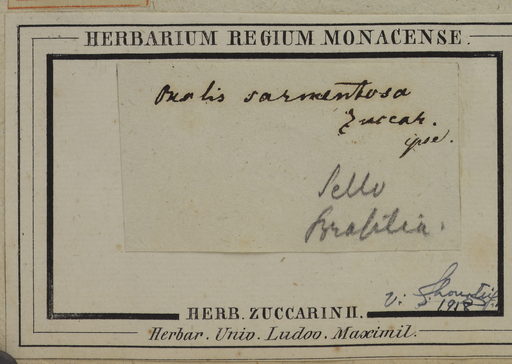 HERBARIUM REGIUM MONACENSE.
Oxalis sarmentosa
Zuccar.
ipse.
Sello
Brasilia.
v:
1918
HERB. ZUCCARINII.
Herbar. Univ. Ludov. Maximil.